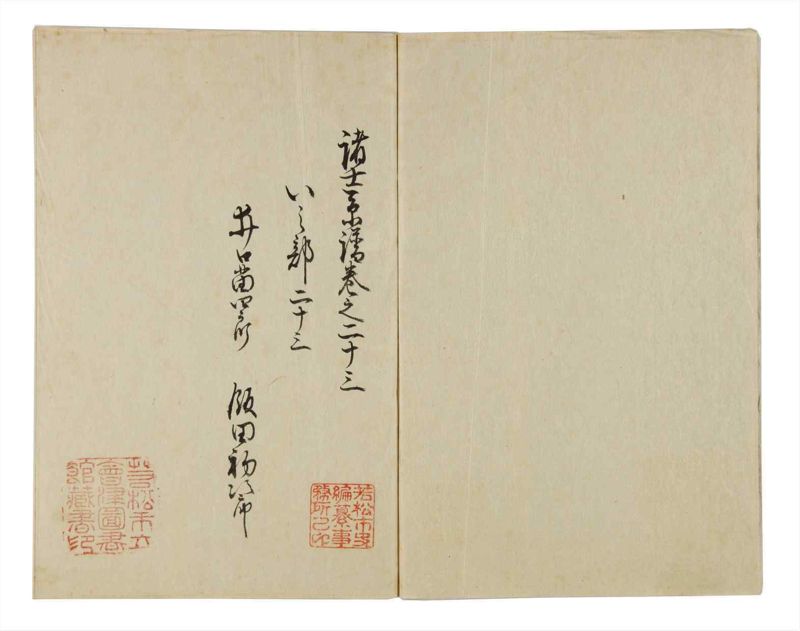 諸士系譜巻之二十三
い之部 二十三
井口 飯田初次郎
若松市史
編纂事
務所之印
若松市立
會津圖書
館藏書印